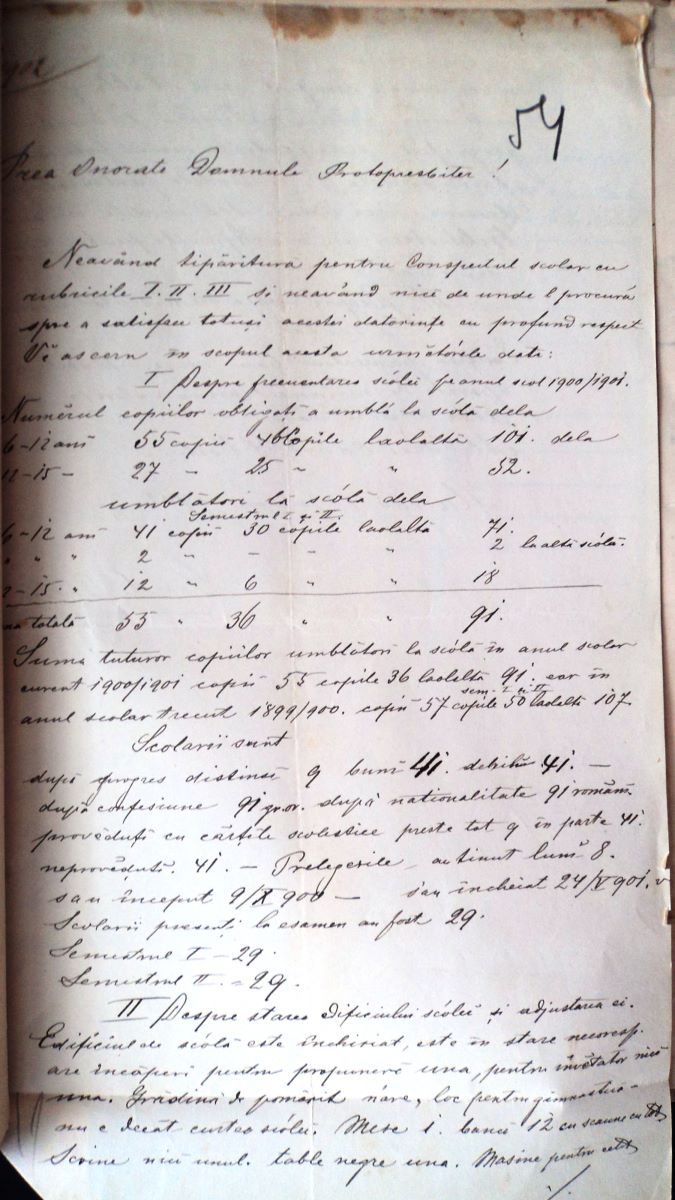 1902
54
Prea Onorate Domnule Protopresbiter!
Neavând tipăritura pentru Conspectul scolar cu
rubricile I. II. III și neavând nici de unde l procură
spre a satisface totuși acestei datorințe cu profund respect
Vĕ ascern în scopul acesta următórele date:
I Despre frecuentarea scólei pe anul scol 1900/1901.
Numĕrul copiilor obligați a umblă la scólă dela
6-12 ani 55 copii 46 copile laolaltă 101. dela
12-15 - 27 - 25 " " 52.
umblători la scólă dela
Semestrul I și II.
6-12 ani 41 copii 30 copile laolaltă 71.
" " " 2 " - " " 2 la altă scólă.
12-15. " 12 " 6 " " 18
totală 55 " 36 " " 91.
Suma tuturor copiilor umblători la scólă în anul scolar
curent 1900/1901 copii 55 copile 36 laolaltă 91. ear în
sem. I și II
anul scolar trecut 1899/900. copii 57 copile 50 laolaltă 107.
Scolarii sunt
după progres distinsi 9 buni 41. debili 41. —
după confesiune 91 gr. or. după naționalitate 91 români.
provĕduți cu cărțile scolastice preste tot 9 în parte 41.
neprovĕduți. 41. — Prelegerile au ținut luni 8.
sau început 9/X 900 — s'au încheiat 24/V 901.
Scolarii presenți la esamen au fost 29.
Semestrul I - 29.
Semestrul II. - 29.
II Despre starea edificiului scólei și adjustarea ei.
Edificiul de scólă este închiriat, este în stare necoresp.
are încăperi pentru propunere una, pentru învĕțător nici
una. Grădină de pomărit n'are, loc pentru gimnastică
nu e decat curtea scólei. Mese 1. bănci 12 cu scaune cu tot
Scrine nici unul. table negre una. Masine pentru